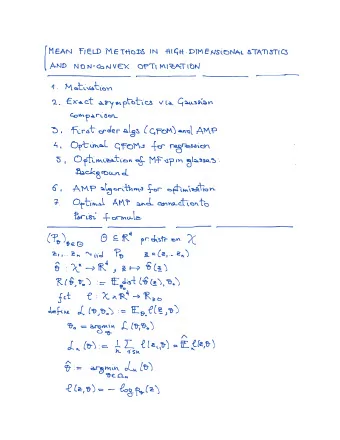 MEAN FIELD METHODS IN HIGH DIMENSIONAL STATISTICS
AND NON-CONVEX OPTIMIZATION
1. Motivation
2. Exact asymptotics via Gaussian
comparison
3. First order algs (GFOM) and AMP
4. Optimal GFOMs for regression
5. Optimization of MF spin glasses:
Background
6. AMP algorithms for optimization
7. Optimal AMP and connection to
Parisi formula
(P_θ)_{θ∈Θ} Θ ⊆ ℝ^d pr. distr. on 𝒳
z₁,… z_n ~iid P_θ₀ z = (z₁… z_n)
θ̂ : 𝒳^n → ℝ^d, z ↦ θ̂(z)
R(θ̂, θ₀) := E_θ₀ dist(θ̂(z), θ₀)
fct ℓ : 𝒳 × ℝ^d → ℝ_≥0
define L(θ, θ₀) := E_θ₀ ℓ(z, θ)
θ₀ = argmin L(θ, θ₀)
L_n(θ) := 1/n Σ_{i≤n} ℓ(z_i, θ) = Ê_n ℓ(z, θ)
θ̂ := argmin_{θ∈Θ_n} L_n(θ)
ℓ(z, θ) = − log p_θ(z)